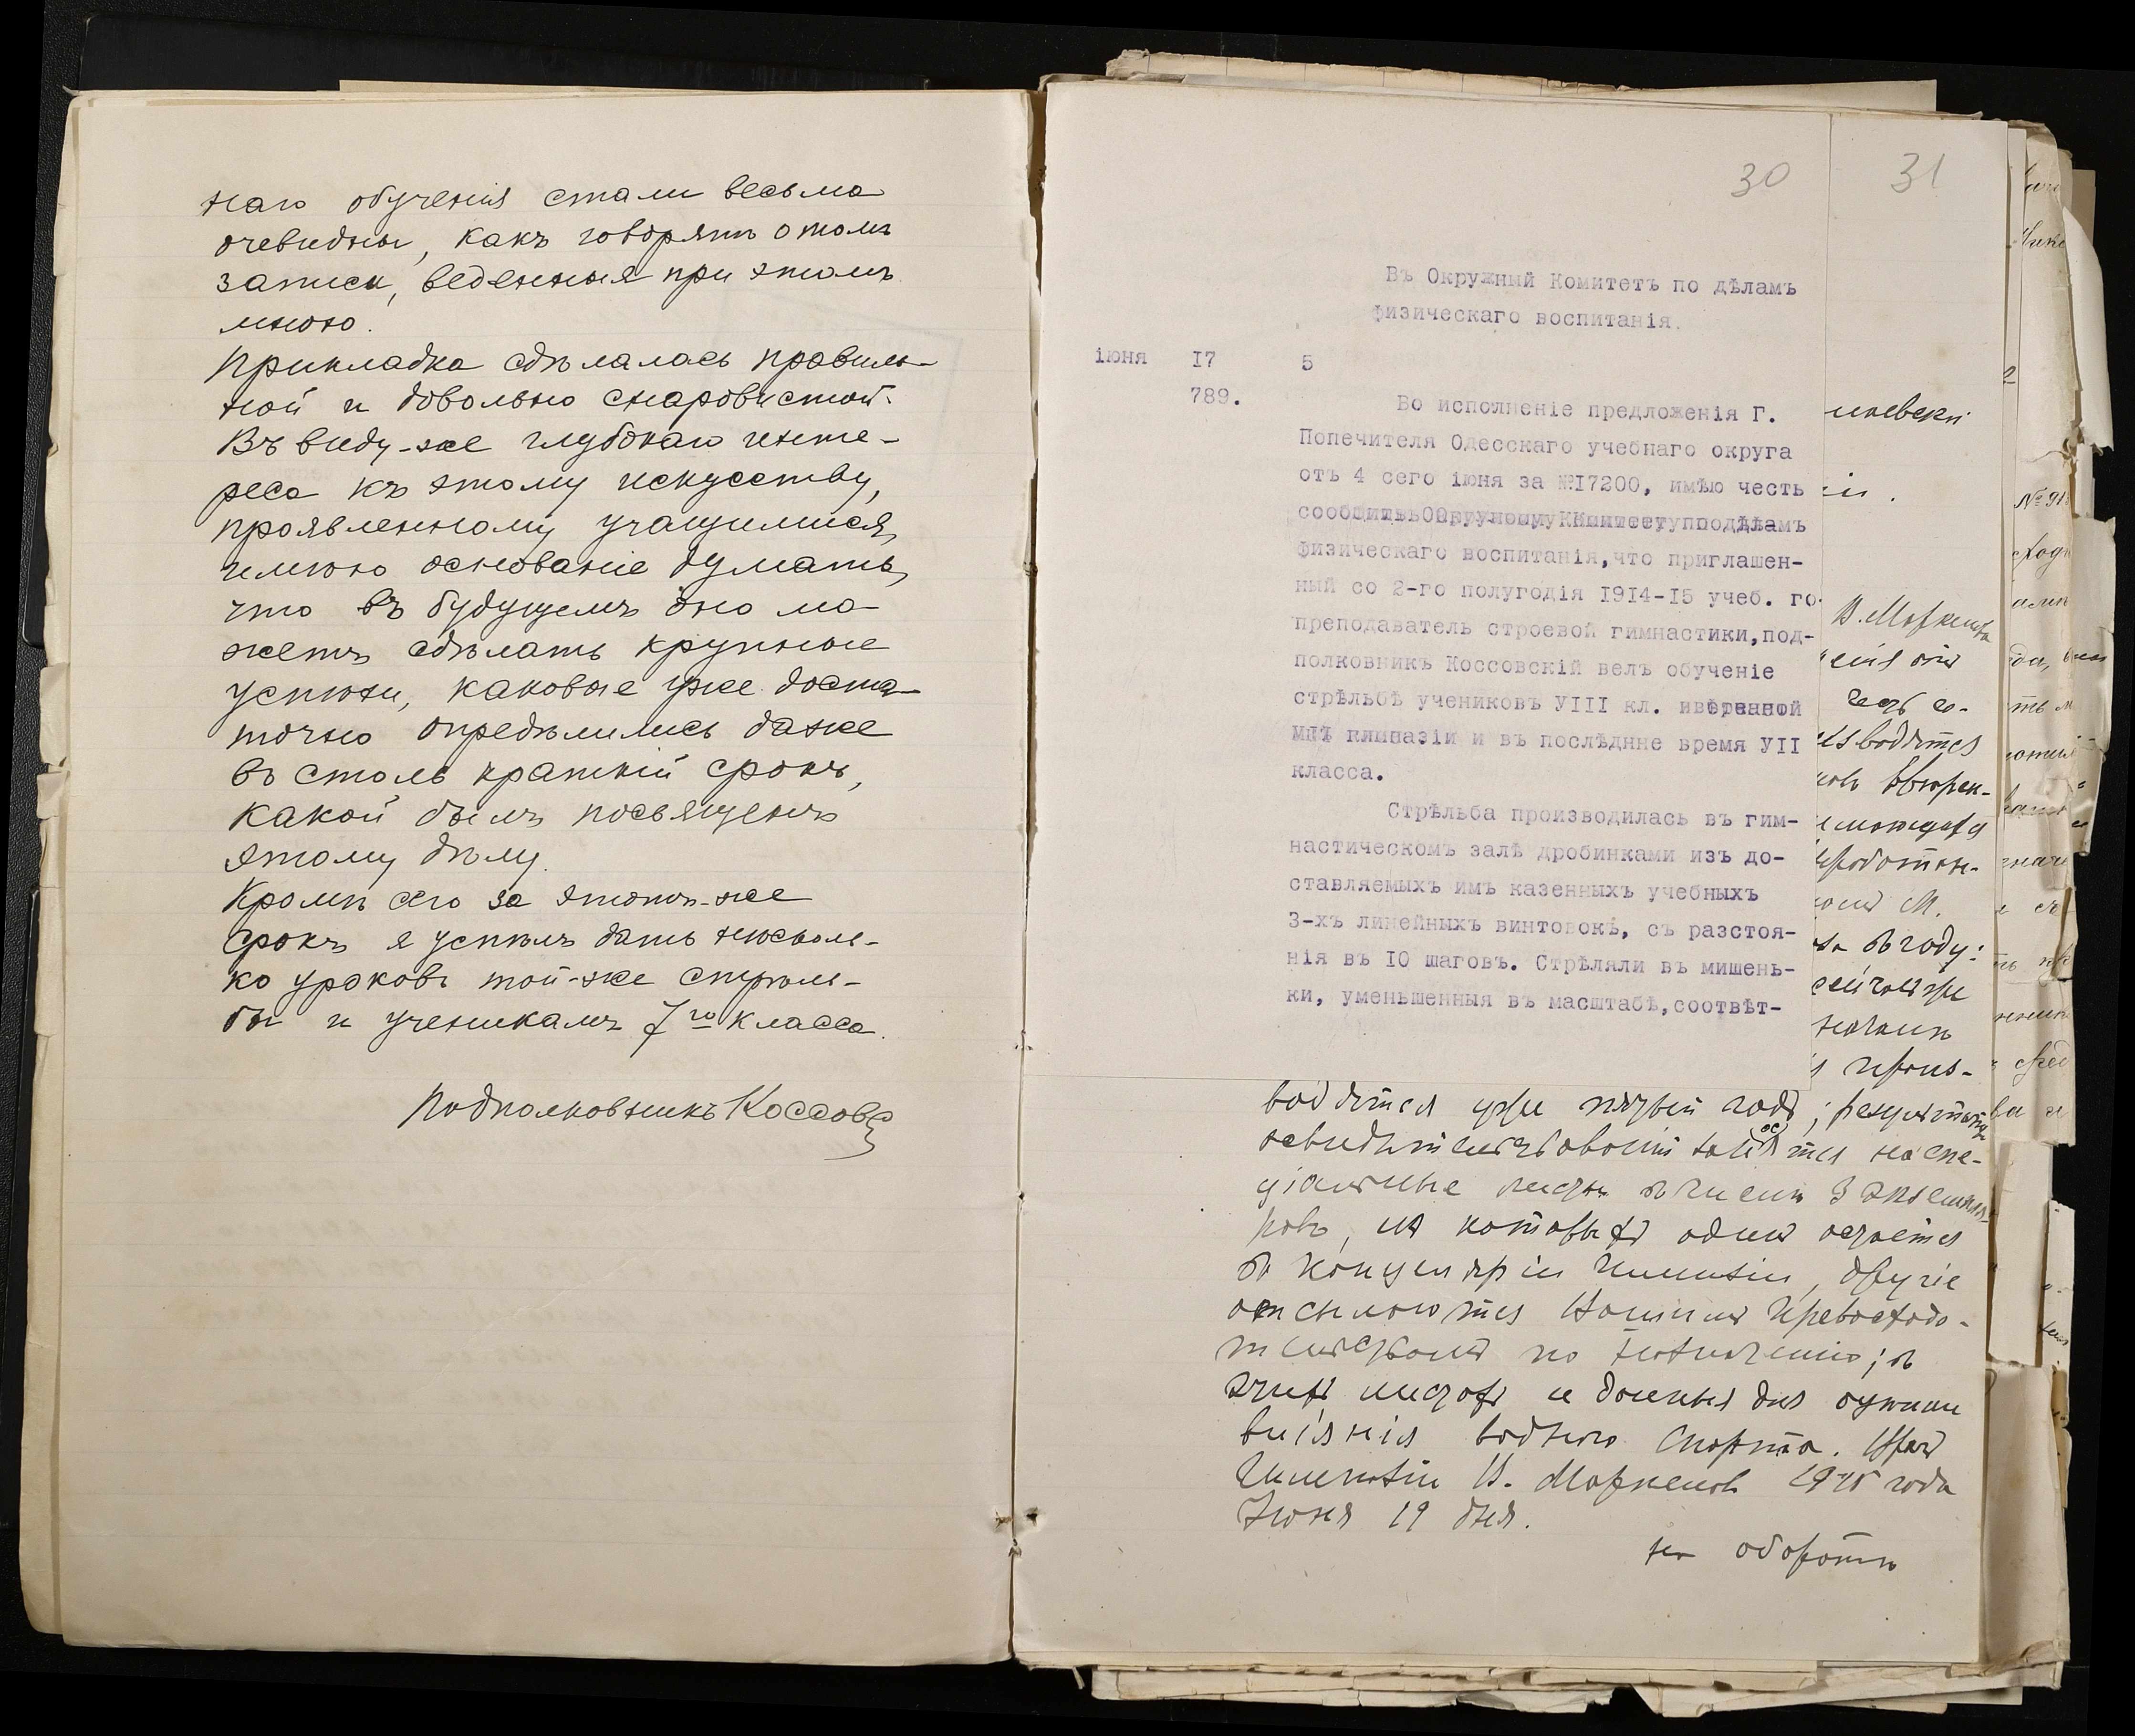 наго обученія стали весьма
очевидны, какъ говорятъ о томъ
записи, веденныя при этомъ
мною.
Прикладка сдѣлалась правиль-
ной и довольно сноровистой.
Въ виду-же глубокаго инте-
реса къ этому искусству,
проявленному учащимися,
имѣю основаніе думать,
что въ будущемъ оно мо-
жетъ сдѣлать крупные
успѣхи, каковые уже доста-
точно опредѣлились даже
въ столь краткій срокъ,
какой былъ посвященъ
этому дѣлу.
Кромѣ сего за этотъ-же
срокъ я успѣлъ дать нѣсколь-
ко уроковъ той-же стрѣль-
бы и ученикамъ 7го класса.
Подполковникъ Коссов
30
31
Въ Окружный Комитетъ по дѣламъ
физическаго воспитанія.
іюня 17 5
789.
Во исполненіе предложенія Г.
Попечителя Одесскаго учебнаго округа
отъ 4 сего іюня за №17200, имѣю честь
сообщить Окружному Комитету по дѣламъ
физическаго воспитанія,что приглашен-
ный со 2-го полугодія 1914-15 учеб. го
преподаватель строевой гимнастики,под-
полковникъ Коссовскій велъ обученіе
стрѣльбѣ учениковъ УІІІ кл. ввѣренной
мнѣ гимназіи и въ послѣднне время УІІ
класса.
Стрѣльба производилась въ гим-
настическомъ залѣ дробинками изъ до-
ставляемыхъ имъ казенныхъ учебныхъ
3-хъ линейныхъ винтовокъ, съ разстоя-
нія въ 10 шаговъ. Стрѣляли въ мишень-
ки, уменьшенныя въ масштабѣ,соотвѣт-
водится уже первый годъ; результаты
освидѣтельствованій заносятся на спе-
ціальные листы въ числѣ 3 экземпля-
ровъ, изъ которыхъ одинъ остается
въ канцеляріи гимназіи, другіе
отсылаются Вашимъ Превосходи-
тельствомъ по назначенію; въ
этихъ листахъ и данныя для оцѣнки
вліянія воднаго спорта. Врачъ
Гимназіи В. Маркевичъ 1915 года
Іюня 19 дня.
на оборотѣ